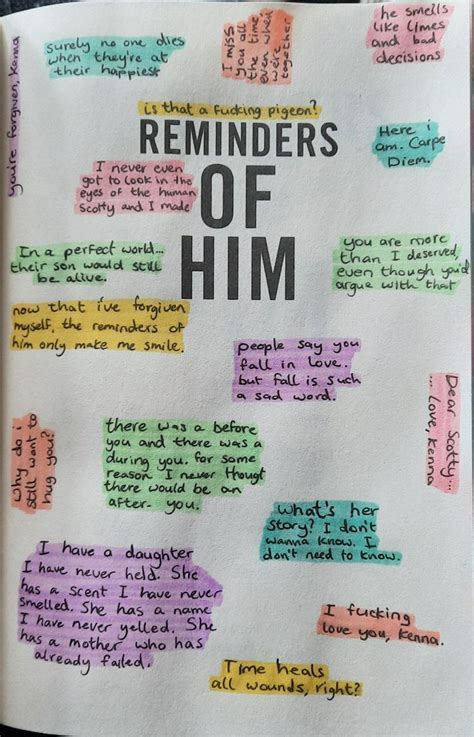 you're forgiven, Kenna
surely no one dies
when they're at
their happiest
I miss
you all
the time,
even when
we're
together
he smells
like limes
and bad
decisions
is that a fucking pigeon?
REMINDERS
OF
HIM
Here i
am. Carpe
Diem.
I never even
got to look in the
eyes of the human
Scotty and I made
In a perfect world...
their son would still
be alive.
you are more
than I deserved,
even though you'd
argue with that
now that i've forgiven
myself, the reminders of
him only make me smile.
people say you
fall in love.
but fall is such
a sad word.
Dear Scotty
... love, Kenna
why do i
still want to
hug you?
there was a before
you and there was a
during you. for some
reason I never thougt
there would be an
after- you.
what's her
story? I don't
wanna know. I
don't need to know.
I have a daughter
I have never held. She
has a scent I have never
smelled. She has a name
I have never yelled. She
has a mother who has
already failed.
I fucking
love you, Kenna.
Time heals
all wounds, right?